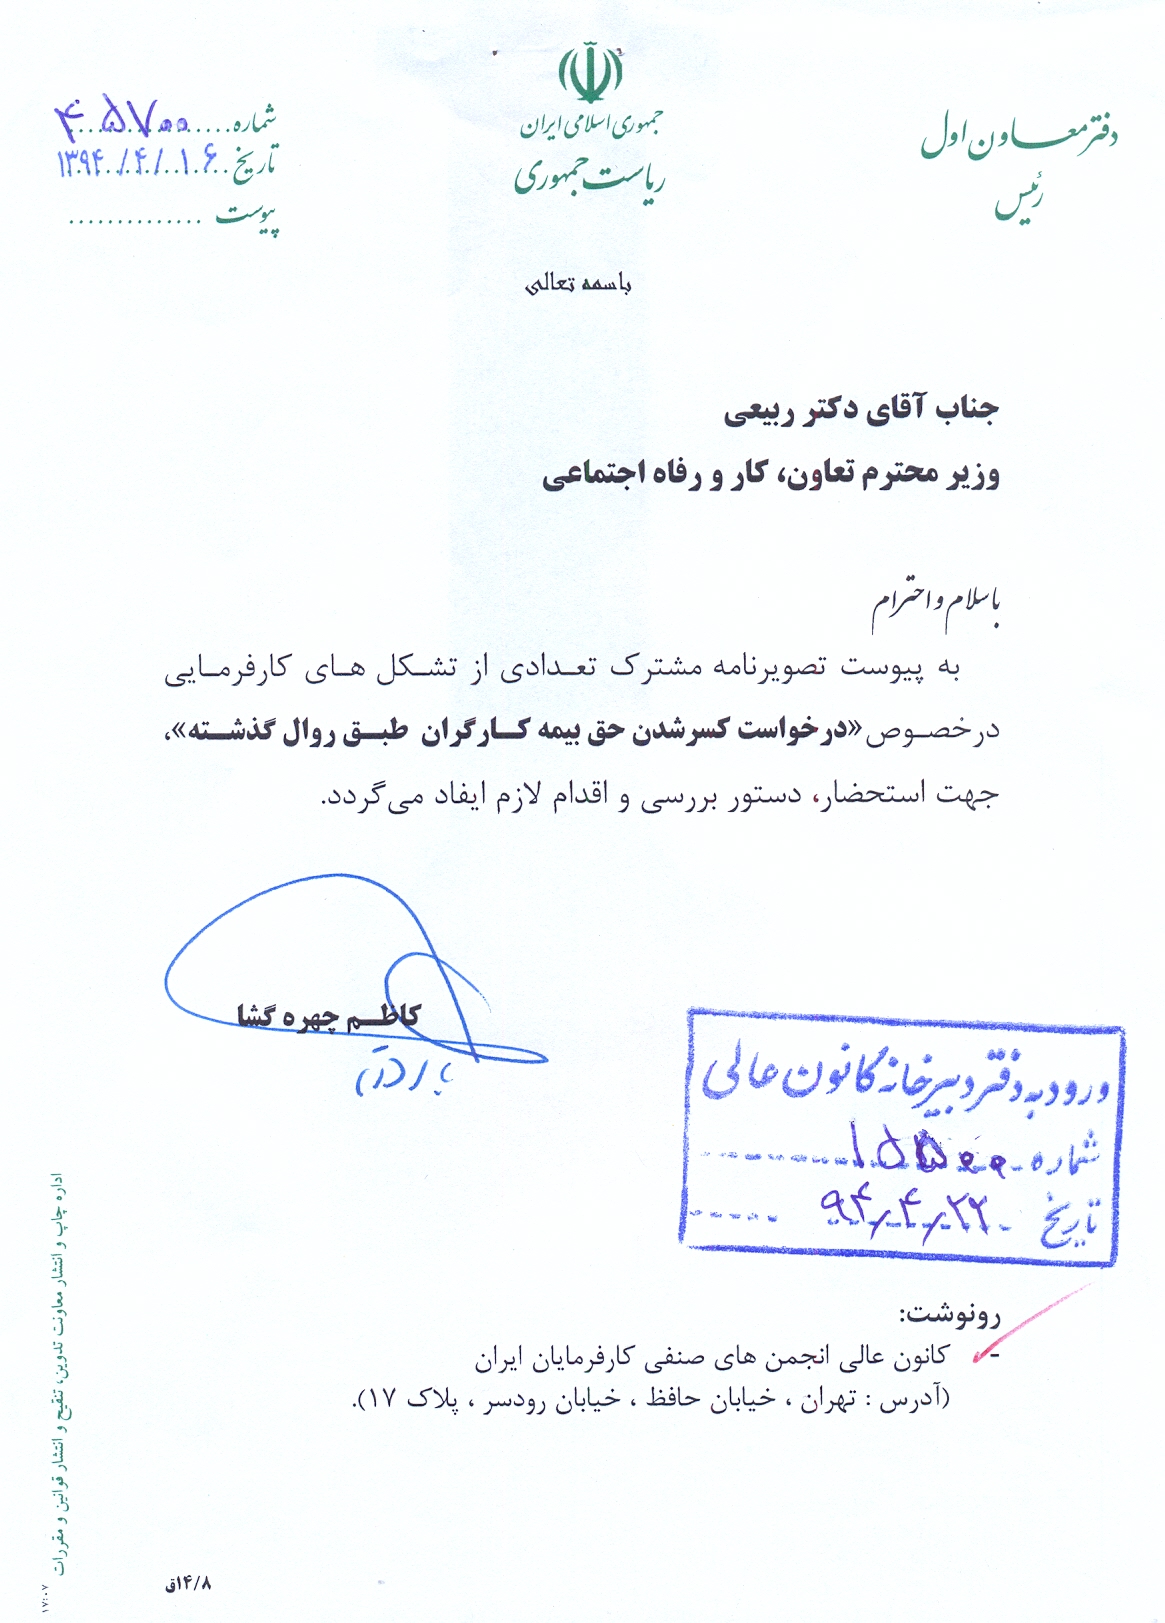 جمهوری اسلامی ایران
ریاست جمهوری
دفتر معاون اول
رئیس
شماره ۴۵۷۰۰
تاریخ ۱۳۹۴/۴/۱۶
پیوست
باسمه تعالی
جناب آقای دکتر ربیعی
وزیر محترم تعاون، کار و رفاه اجتماعی
با سلام و احترام
به پیوست تصویرنامه مشترک تعدادی از تشکل های کارفرمایی
درخصوص «درخواست کسرشدن حق بیمه کارگران طبق روال گذشته»،
جهت استحضار، دستور بررسی و اقدام لازم ایفاد می‌گردد.
کاظم چهره گشا
ورود به دفتر دبیرخانه کانون عالی
شماره ۱۵۵۰۰
تاریخ ۹۴/۴/۲۲
رونوشت:
- کانون عالی انجمن های صنفی کارفرمایان ایران
(آدرس : تهران ، خیابان حافظ ، خیابان رودسر ، پلاک ۱۷).
اداره چاپ و انتشار معاونت تدوین، تنقیح و انتشار قوانین و مقررات
۱۷:۰۷
۱۴/۸ق